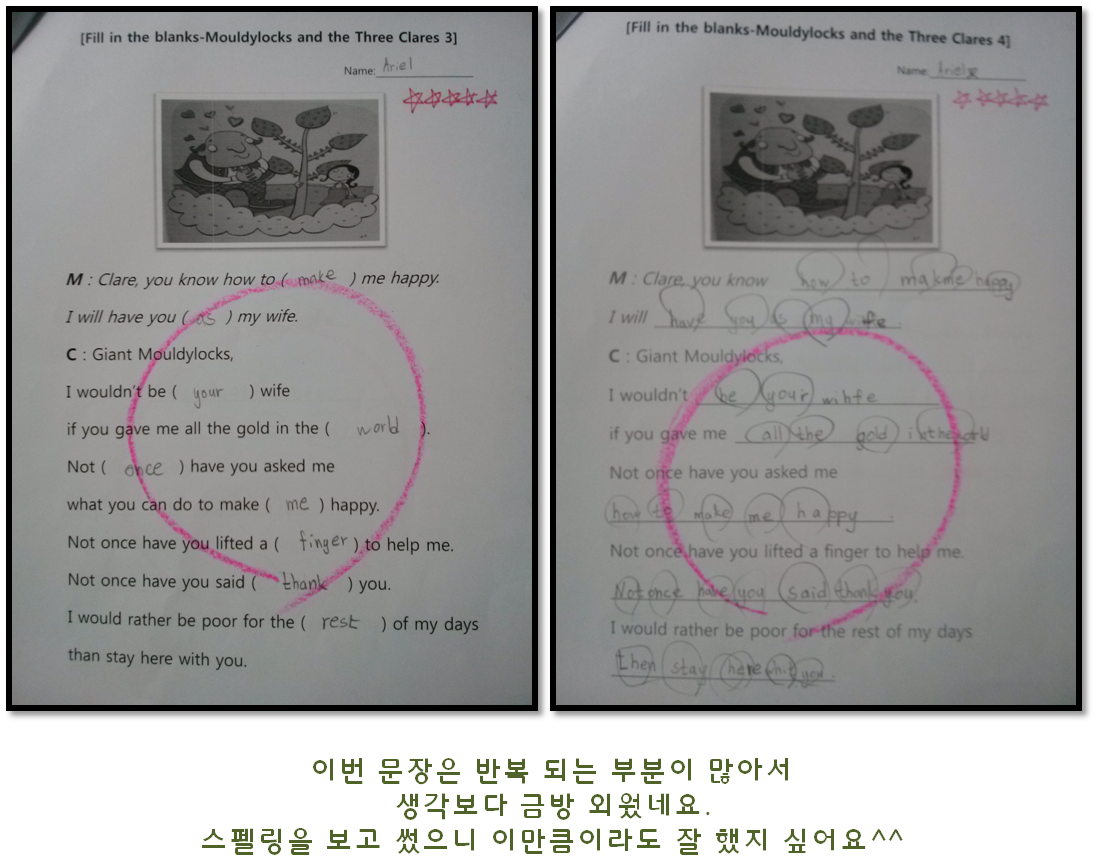 [Fill in the blanks-Mouldylocks and the Three Clares 3]
Name: Ariel
M : Clare, you know how to ( make ) me happy.
I will have you ( as ) my wife.
C : Giant Mouldylocks,
I wouldn't be ( your ) wife
if you gave me all the gold in the ( world ).
Not ( once ) have you asked me
what you can do to make ( me ) happy.
Not once have you lifted a ( finger ) to help me.
Not once have you said ( thank ) you.
I would rather be poor for the ( rest ) of my days
than stay here with you.
[Fill in the blanks-Mouldylocks and the Three Clares 4]
Name: Ariel
M : Clare, you know how to makme happy
I will have you as my wife.
C : Giant Mouldylocks,
I wouldn't be your wihfe
if you gave me all the gold in the world
Not once have you asked me
how to make me happy
Not once have you lifted a finger to help me.
Not once have you said thank you.
I would rather be poor for the rest of my days
then stay here you.
이번 문장은 반복 되는 부분이 많아서
생각보다 금방 외웠네요.
스펠링을 보고 썼으니 이만큼이라도 잘 했지 싶어요^^